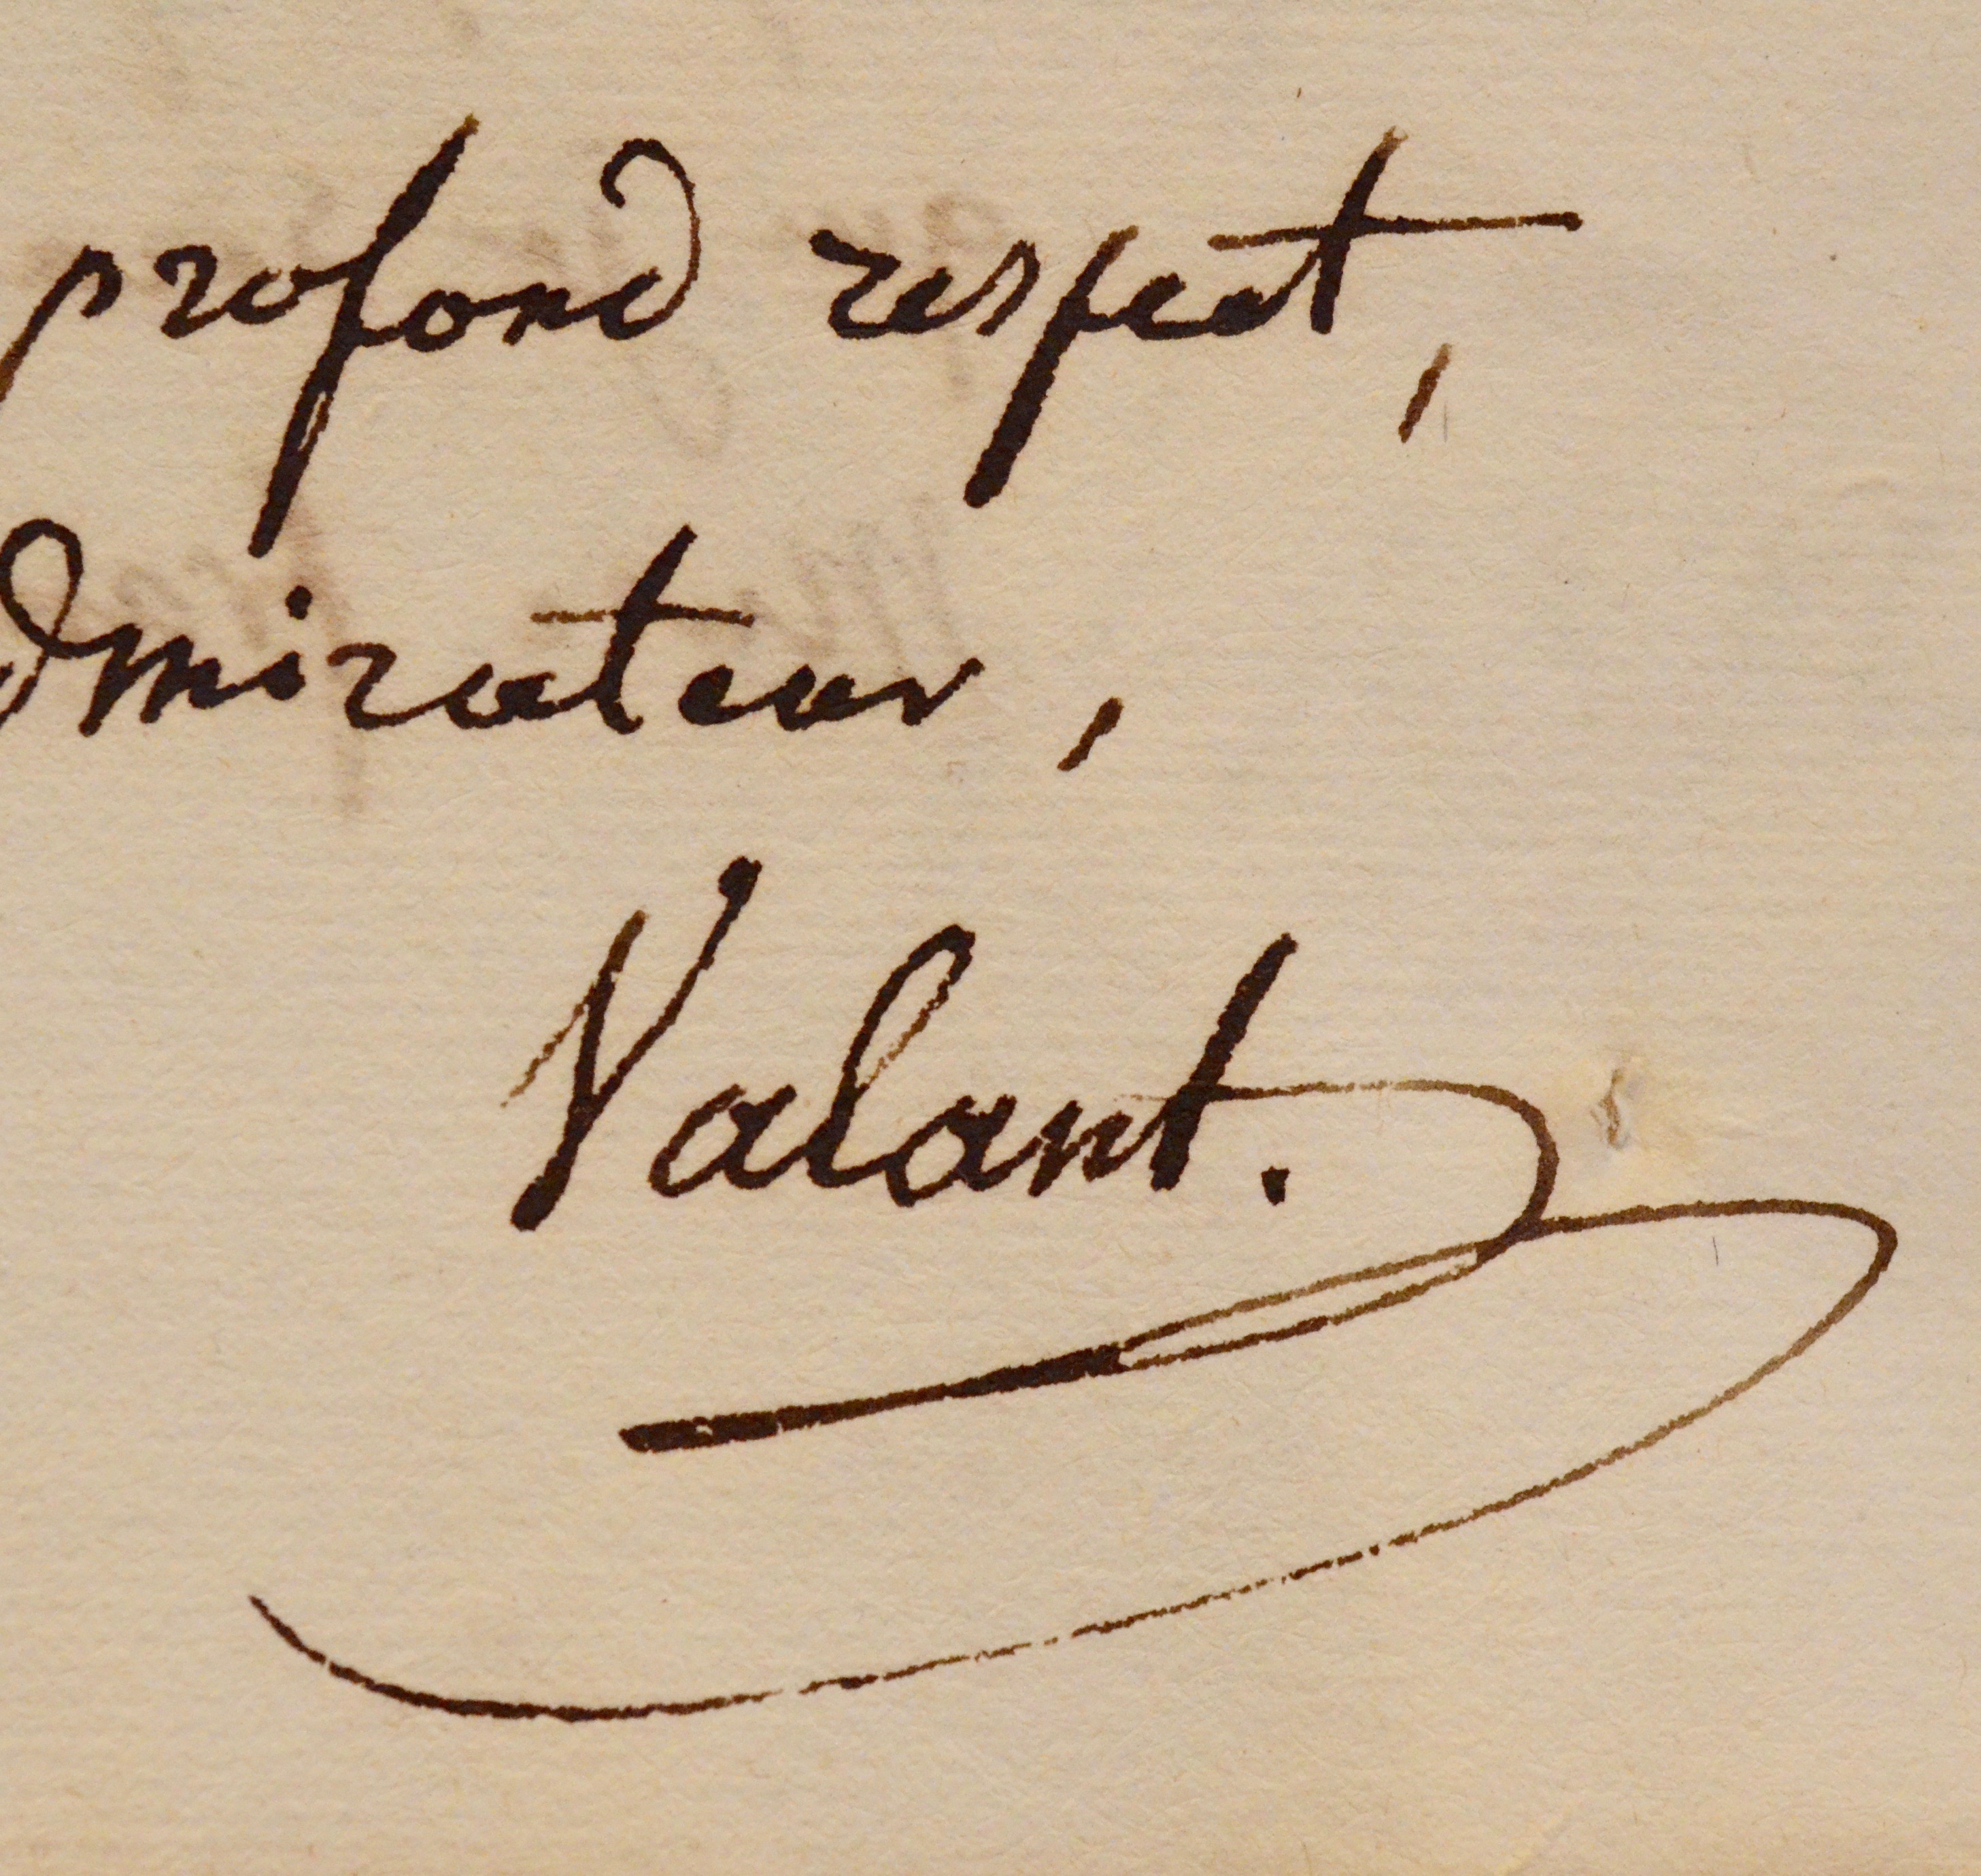 profond respect,
dmirateur,
Valant.